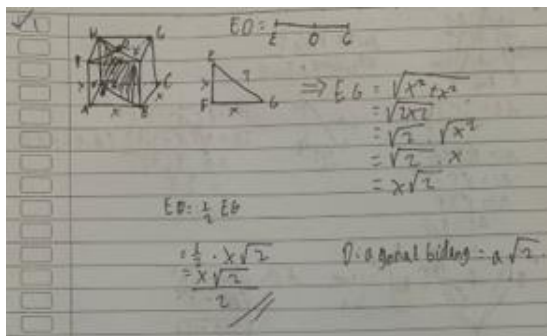 1
EO = E O G
H G
E
x x C
A x B
E
x ?
F x G
⇒ EG = √x² + x²
= √2x2
= √2 . √x²
= √2 . x
= x√2
EO = 1/2 EG
= 1/2 . x√2
= x√2
2
Diagonal bidang = a√2